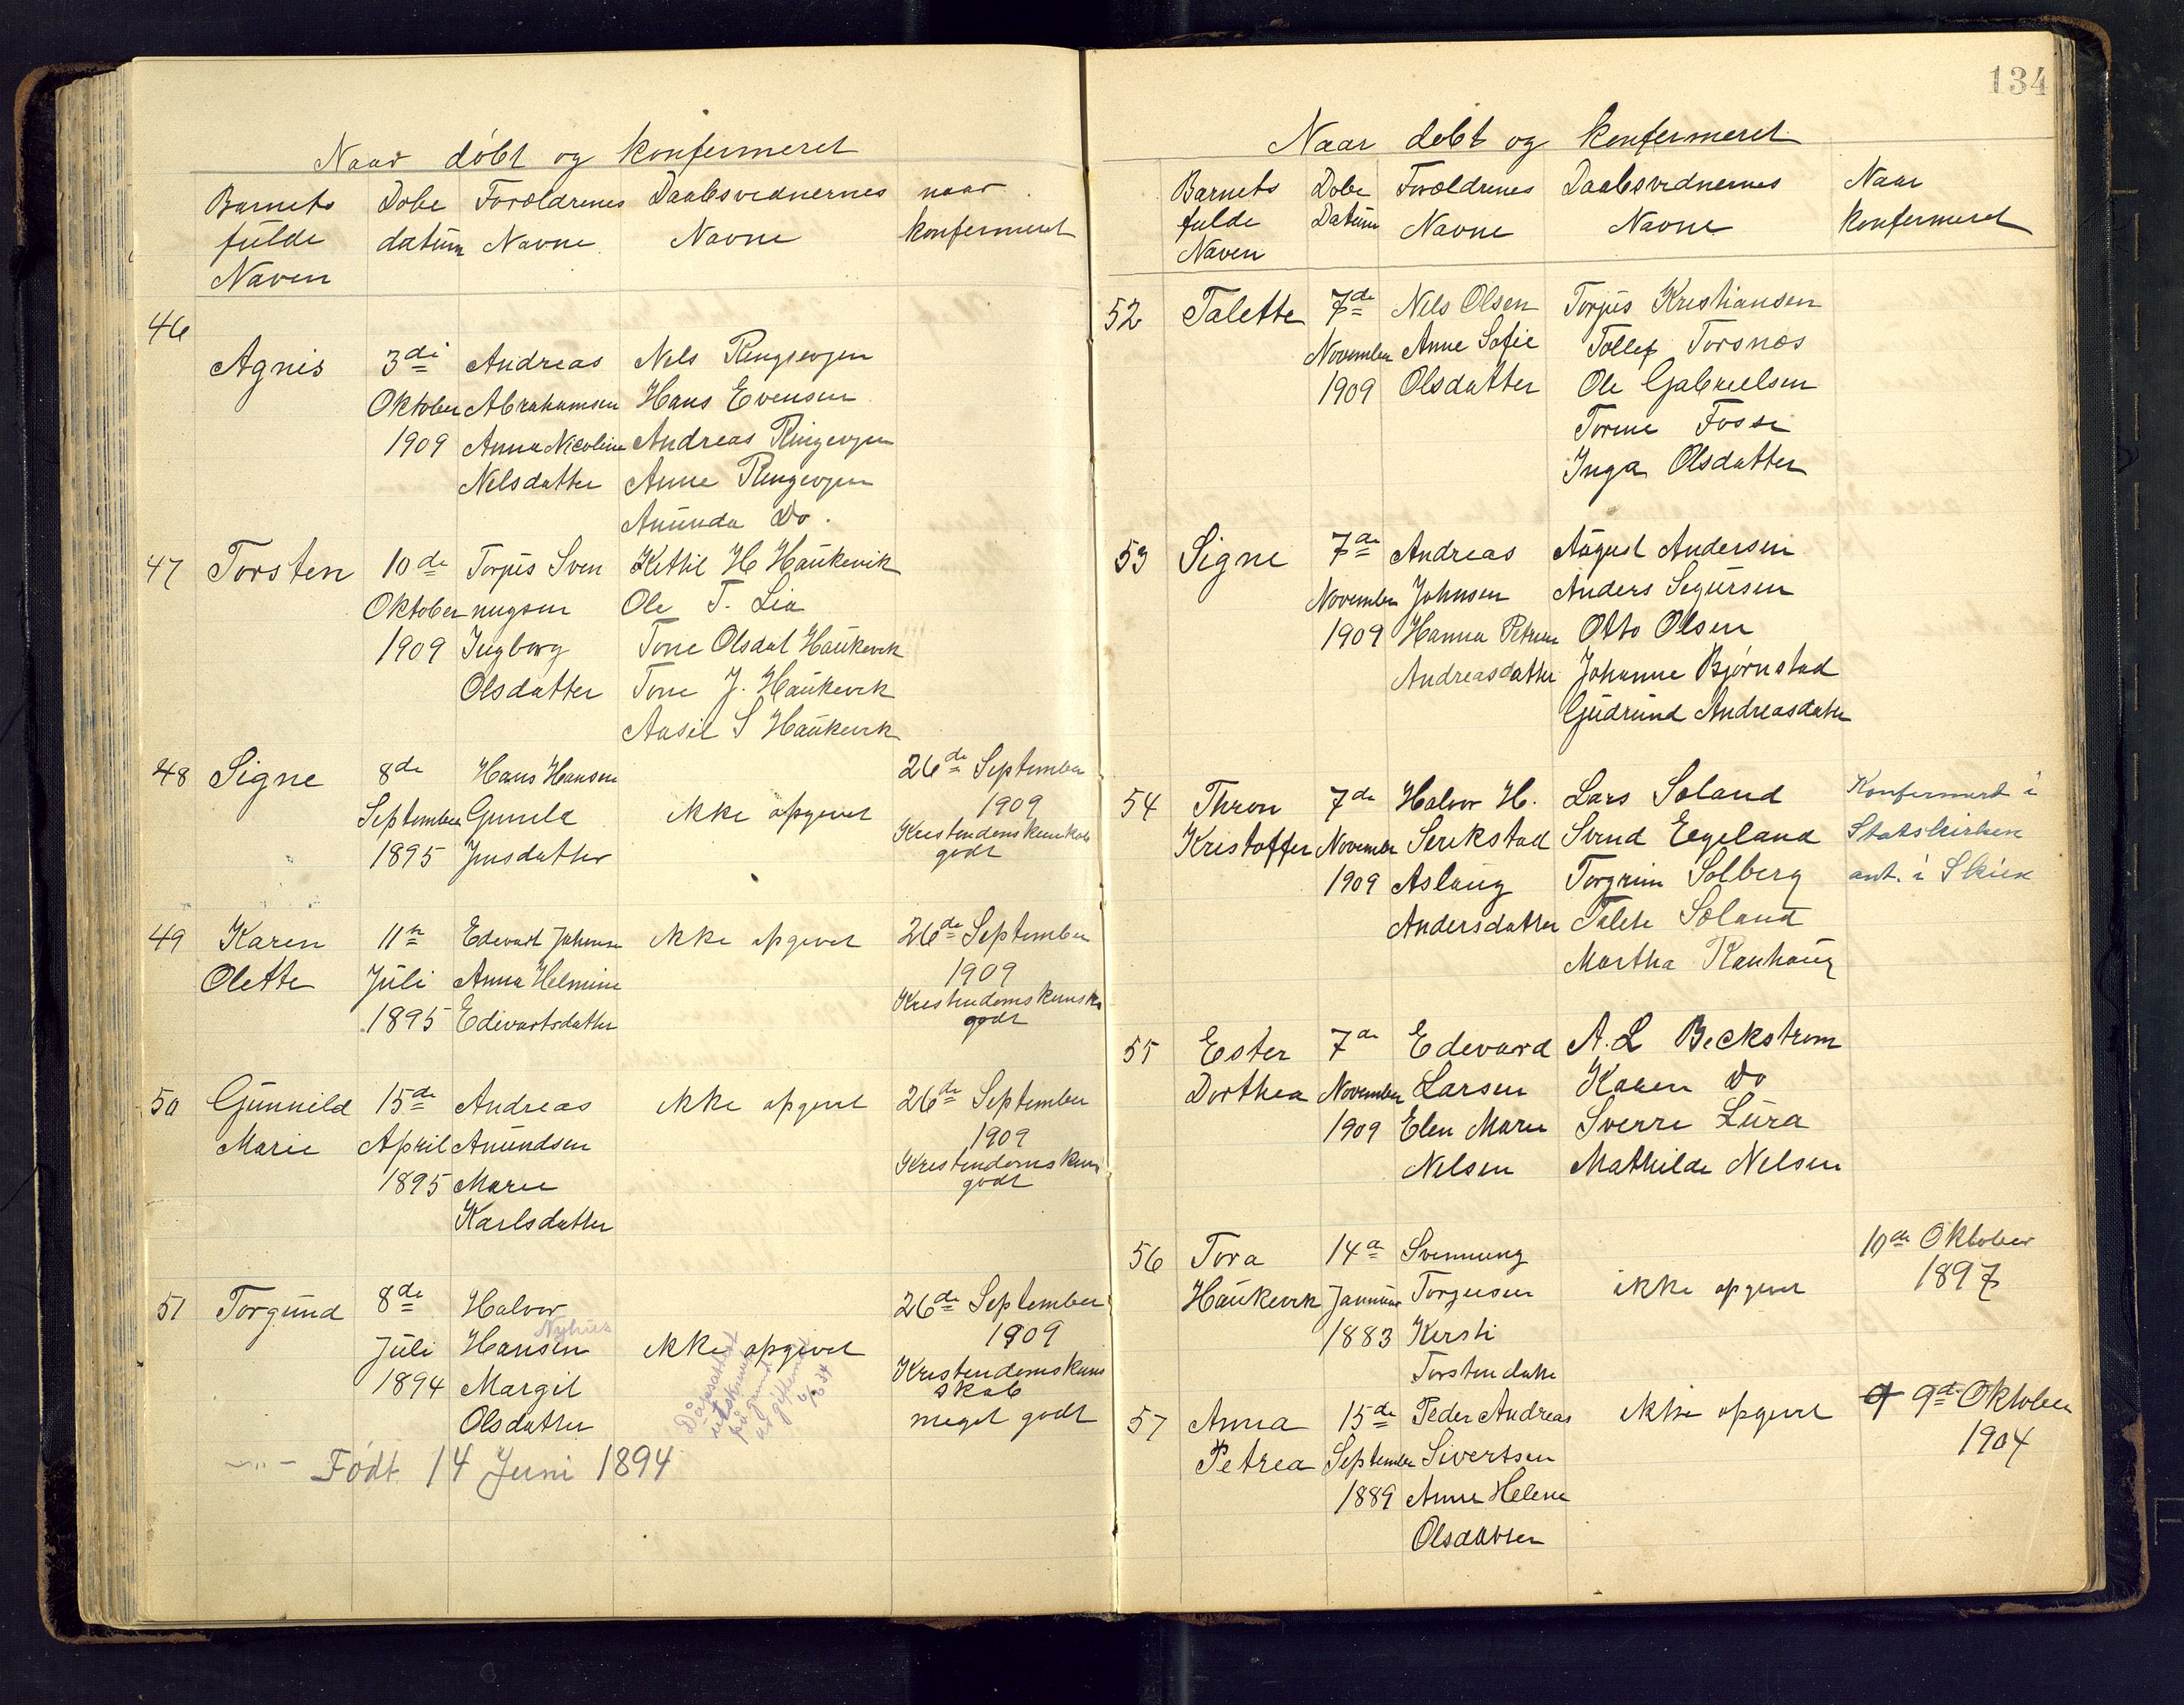 Naar döbt og konfermeret
Barnets Dobe Forældrenes Daabsvidnernes naar
fulde datum Navne Navne konfermeret
Naven
46
Agnis 3di Andreas Nels Ringsevjen
Oktober Abrahamsen Hans Evensen
1909 Anna Nicoline Andreas Ringevjen
Nelsdatter Anne Ringevjen
Amunda Do.
47 Torsten 10de Torjus Sven Kettil H Haukevik
Oktober nugsen Ole T. Lia
1909 Ingborg Tone Olsdat Haukevik
Olsdatter Tone J. Haukevik
Aasil S Haukevik
48 Signe 8de Hans Hansen 26de September
September Gunela ikke opgevet 1909
1895 Jensdatter Kristendomskunskab
godt
49 Karen 11te Edevart Johnsen ikke opgevet 26de September
Olette Juli Anna Helmine 1909
1895 Edevartsdatter Kristendomskunsk
godt
50 Gunneild 15de Andreas ikke opgevet 26de September
Marie April Amundsen 1909
1895 Marie Kristendomskun
Karlsdatter godt
51 Torgund 8de Halvor 26de September
Nyhus
Juli Hansen ikke opgivet 1909
1894 Margit Kristendomskuns
skab
Olsdatter meget godt
Dåpsattest
utskrevet
på grund
av giftermål
6/6 34
Født 14 Juni 1894
134
Naar debt og konfermeret
Barnets Dobe Forældrenes Daabsvidnernes Naar
fulde Datum Navne Navne konfermeret
Naven
52 Talette 7de Nels Olsen Torjus Kristiansen
November Anne Sofie Tollef Torsnes
1909 Olsdatter Ole Gabrielsen
Torine Fosse
Inga Olsdatter
53 Signe 7de Andreas August Andersen
November Johnsen Anders Segursen
1909 Hanna Petrine Otto Olsen
Andreasdatter Johanne Bjørnstad
Gudrund Andreasdatter
54 Thron 7de Halvor H. Lars Soland Konfermert i
Kristoffer November Serekstad Svend Egeland Statskirken
1909 Aslaug Torgrim Solberg ant. i Skien
Andersdatter Talete Soland
Martha Kanhaug
55 Ester 7de Edevard A. L Beckstrom
Dorthea November Larsen Karen Do
1909 Elen Marie Sverre Lura
Nelsen Mathilde Nelsen
56 Tora 14de Svennung 10de Oktober
Haukevik Januar Torjusen ikke opgevet 1897
1883 Kersti
Torstendatte
57 Anna 15de Peder Andreas ikke opgevet 9de Oktober
Petrea September Sivertsen 1904
1889 Anne Helene
Olsdatter